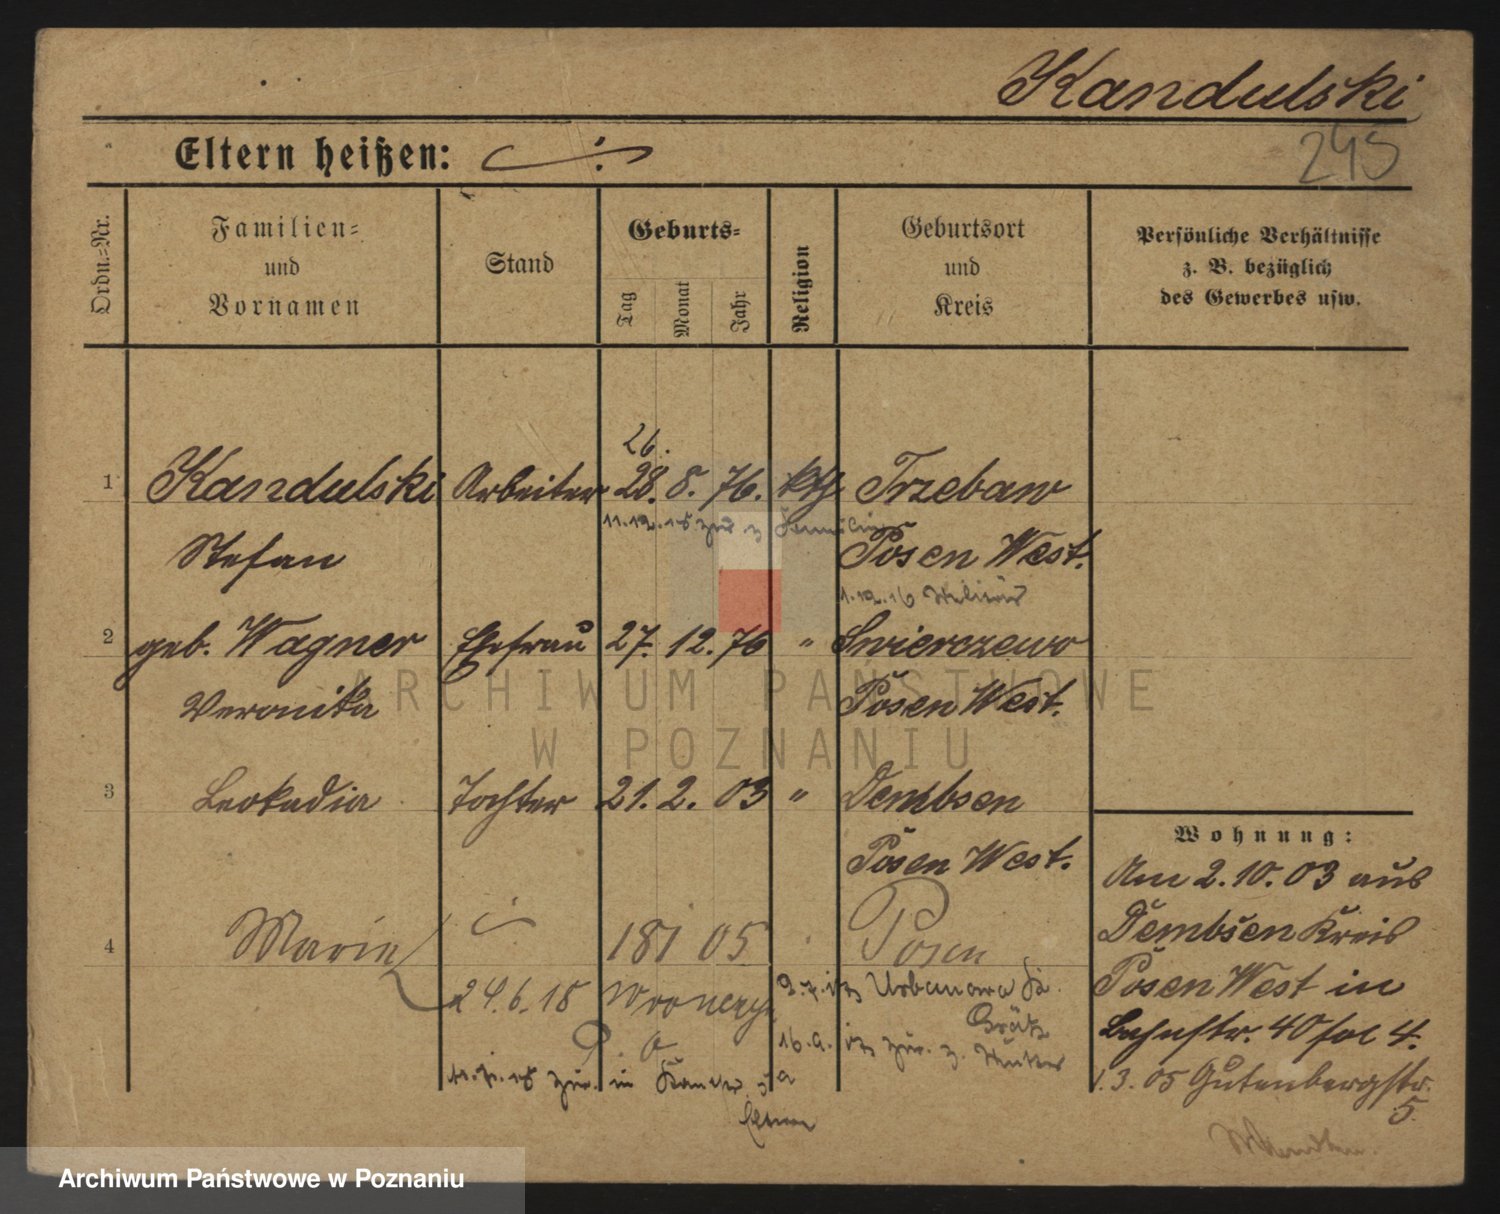 Kandulski
245
Eltern heißen:
Ordn.-Nr.
Familien-
und
Vornamen
Stand
Geburts-
Tag
Monat
Jahr
Religion
Geburtsort
und
Kreis
Persönliche Verhältnisse
z. B. bezüglich
des Gewerbes usw.
26.
1 Kandulski Arbeiter 28. 8. 76. kth Trzebaw
11.12.18 zur. z Familie
Stefan Posen West.
1.12.16 Militär
2 geb. Wagner Ehefrau 27. 12. 76 " Swierczewo
Veronika Posen West.
3 Leokadia Tochter 21. 2. 03 " Dembsen
Posen West.
4 Marie 18 1 05 Posen
24.6.18 Wronerstr
Urbanowo Kr.
Grätz
zur. z. Mutter
zur. in
Eltern
Wohnung:
Am 2.10.03 aus
Dembsen Kreis
Posen West in
Bahnstr. 40 fol 4.
1.3.05 Gutenbergstr.
5.
ARCHIWUM PAŃSTWOWE
W POZNANIU
Archiwum Państwowe w Poznaniu